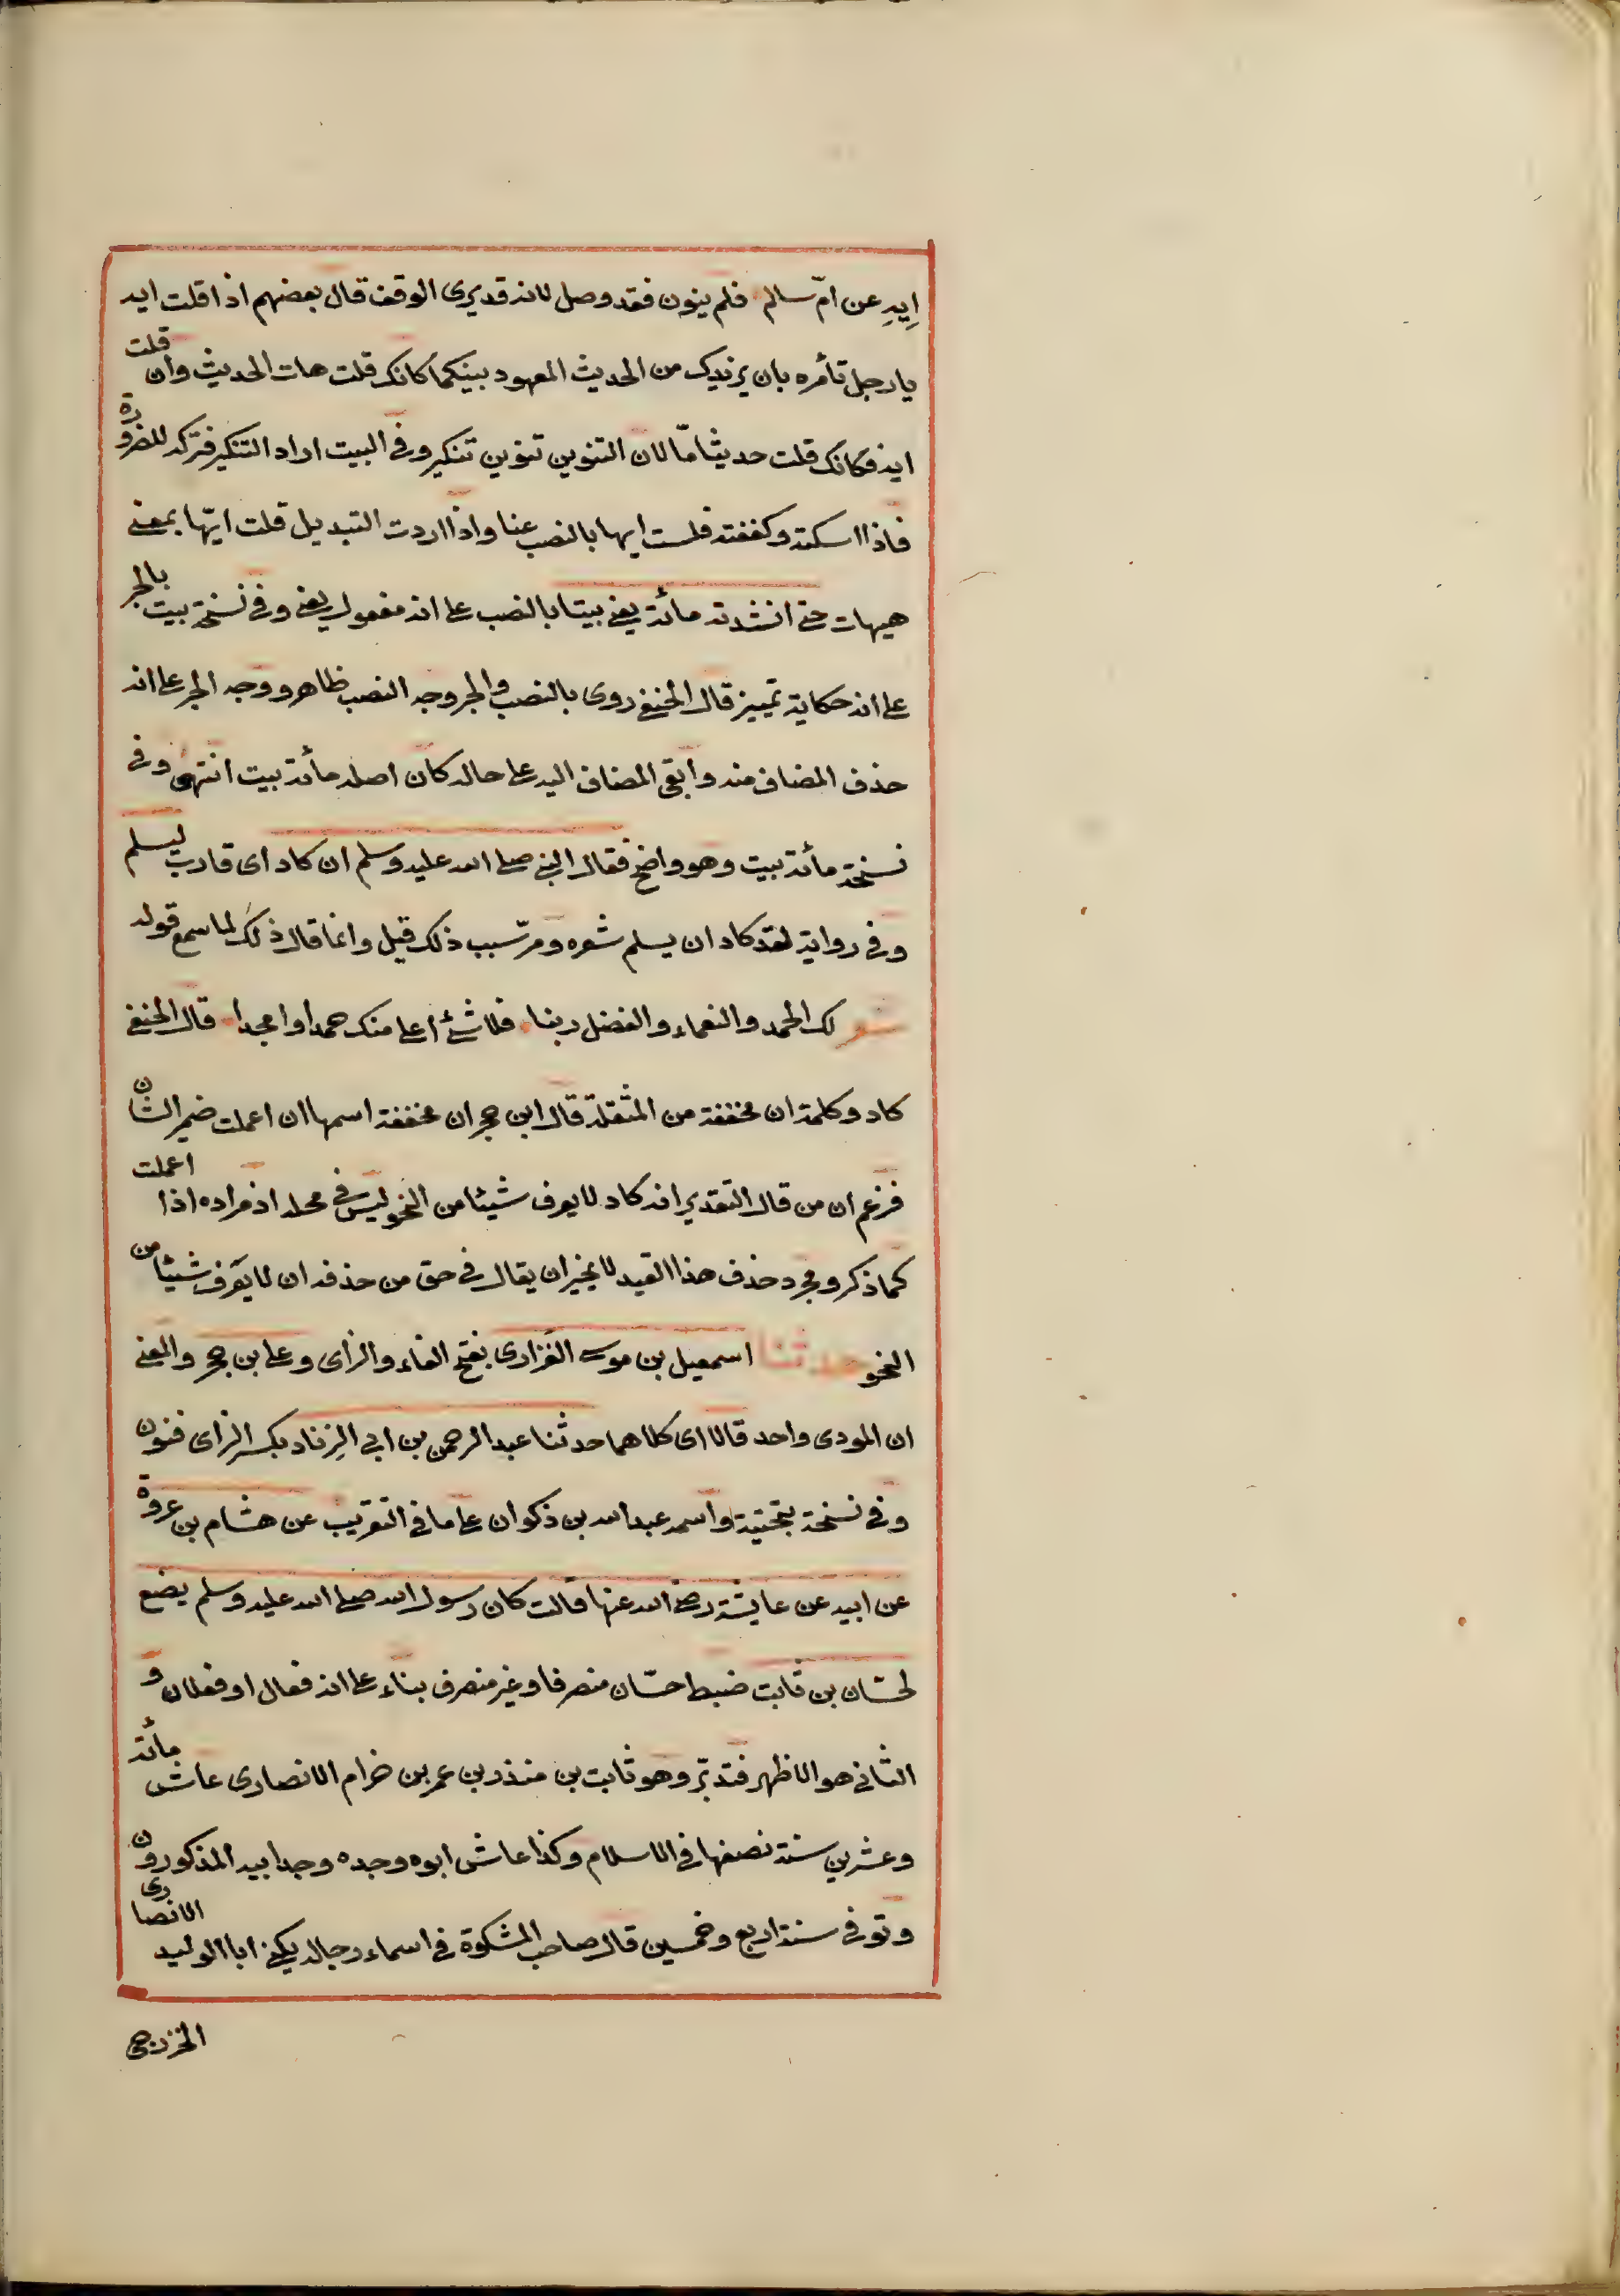 إيهِ عن امّ سالم فلم ينون فقد وصل لانه قد يرى الوقف قال بعضهم اذا قلت ايه
يا رجل تأمره بان يزيدك من الحديث المعهود بينكما كانك قلت هات الحديث وان قلت
ايه فكانك قلت حديثا مّا لان التنوين تنوين تنكير وفي البيت اراد التنكير فتركه للضرورة
فاذا اسكته وكففته قلت ايها بالنصب عنا واذا اردت التبديل قلت ايّها بمعنى
هيهات حتى انشدته مائة يعنى بيتا بالنصب على انه مفعول يعنى وفي نسخة بيت بالجر
على انه حكاية تمييز قال الحنفى روى بالنصب والجر وجه النصب ظاهر ووجه الجر على انه
حذف المضاف منه وابقى المضاف اليه على حاله كان اصله مائة بيت انتهى وفي
نسخة مائة بيت وهو واضح فقال النبى صلى الله عليه وسلم ان كاد اى قارب ليسلم
وفي رواية لقد كاد ان يسلم شعره ومرّ سبب ذلك قيل وانما قال ذلك لما سمع قوله
شعر لك الحمد والنعماء والفضل ربنا فلا شئ أعلى منك حمدا وامجدا قال الحنفى
كاد وكلمة ان مخففة من المثقلة قال ابن حجر ان مخففة اسمها ان اعملت ضمير الشان
فزعم ان من قال التقدير انه كاد لا يعرف شيئا من النحو ليس في محله اذ مراده اذا اعملت
كما ذكر ومجرد حذف هذا القيد لا يجيز ان يقال في حق من حذفه ان لا يعرف شيئا من
النحو حدثنا اسمعيل بن موسى الفزارى بفتح الفاء والزاى وعلى بن حجر والمعنى
ان المودى واحد قالا اى كلاهما حدثنا عبد الرحمن بن ابي الزناد بكسر الزاى فنون
وفي نسخة بتحتية واسمه عبد الله بن ذكوان على ما في التقريب عن هشام بن عروة
عن ابيه عن عايشة رضى الله عنها قالت كان رسول الله صلى الله عليه وسلم يضع
لحسّان بن ثابت ضبط حسّان منصرفا وغير منصرف بناء على انه فعال او فعلان و
الثاني هو الاظهر فتدبّر وهو ثابت بن منذر بن عمر بن خرام الانصارى عاش مائة
وعشرين سنة نصفها في الاسلام وكذا عاش ابوه وجده وجد ابيه المذكورون
وتوفي سنة اربع وخمسين قال صاحب المشكوة في اسماء رجاله يكنى ابا الوليد الانصارى
الخزرجى